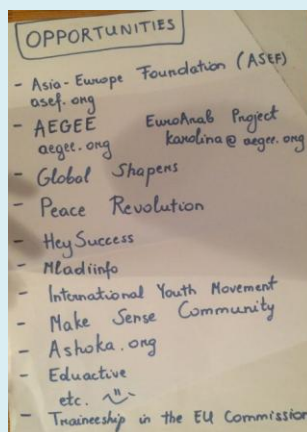 OPPORTUNITIES
- Asia-Europe Foundation (ASEF)
asef.org
- AEGEE EuroArab Project
aegee.org karolina@aegee.org
- Global Shapers
- Peace Revolution
- HeySuccess
- Mladiinfo
- International Youth Movement
- Make Sense Community
- Ashoka.org
- Eduactive
etc. ツ
- Traineeship in the EU Commission